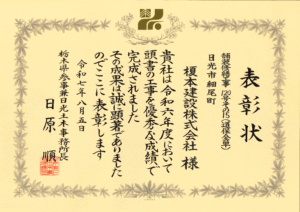 表彰状
日光市細尾町
榎本建設株式会社 様
貴社は令和六年度において
頭書の工事を優秀な成績で
完成されました
その成果は誠に顕著でありました
のでここに表彰します
令和七年八月五日
栃木県参事兼日光土木事務所長
日原 順